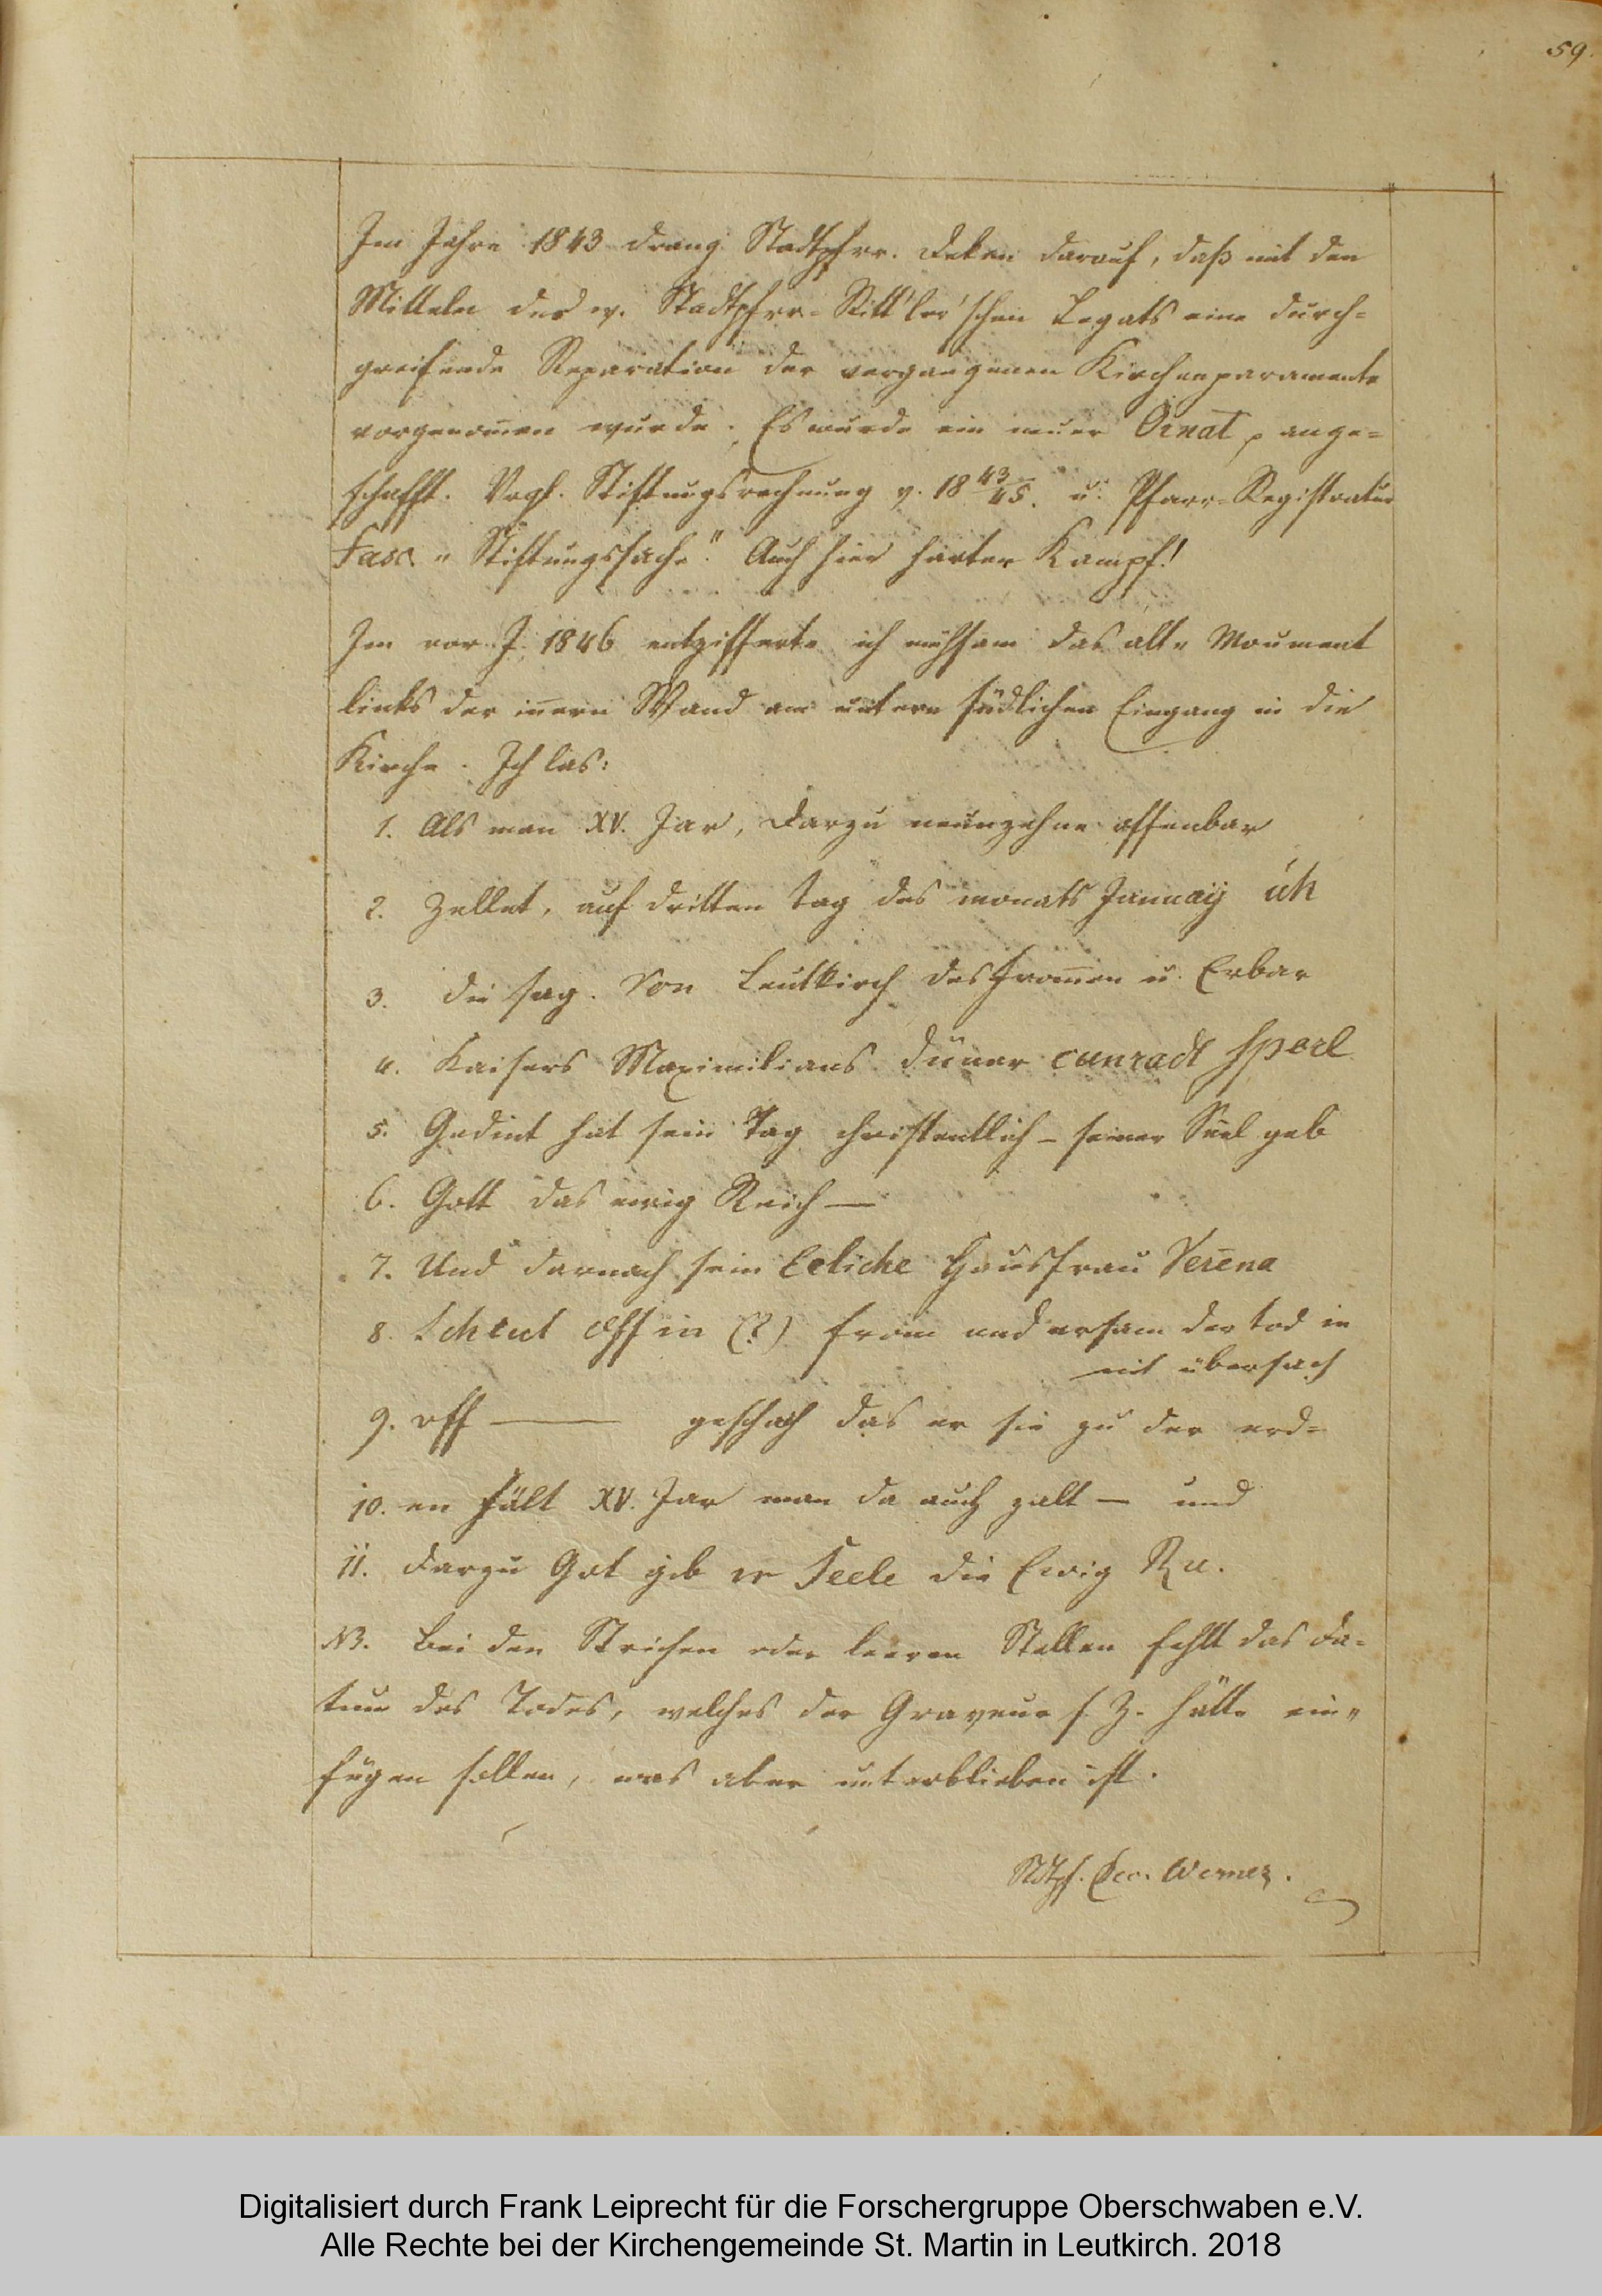 59.
Im Jahre 1843 drang Stadtpfrr. Dekan darauf, daß mit den
Mitteln des v. Stadtpfrr. Rittler'schen Legats eine durch=
greifende Reparation der vergangenen Kirchenparamente
vorgenom̄en wurde. Es wurde ein neuer Ornat p ange=
schafft. Vrgl. Stiftungsrechnung v. 18 43/45. u. Pfarr-Registratur
Fasc. „Stiftungssache." Auch hier harter Kampf!
Im vor. J. 1846 entzifferte ich mühsam das alte Moument
links der in̄ern Wand am untern südlichen Eingang in die
Kirche. Ich las:
1. Als man XV. Jar, darzu neunzehne offenbar
2. Zellet, auf dritten tag des monats Januaij üh
3. die sag. Von Leutkirch des from̄en u. Erbar
4. Kaisers Maximilians düner cunradt sporl
5. Gedint hat sein Tag christentlich – seiner Seel geb
6. Gott das ewig Reich —
7. Und darnach sein Eeliche Hausfrau Verena
8. Scheut offin (?) from und ersam der tod in
nit übersach
9. off — geschach das er sie zu der erd=
10. en fält XV. Jar man da auch zalt — und
11. darzu Got geb ir Seele die Ewig Ru.
NB. Bei den Strichen oder leeren Stellen fehlt das Da=
tum des Todes, welches der Graveur s. Z. hätte ein=
fügen sollen, was aber unterblieben ist.
Stdtpf. Dec. Werner.
Digitalisiert durch Frank Leiprecht für die Forschergruppe Oberschwaben e.V.
Alle Rechte bei der Kirchengemeinde St. Martin in Leutkirch. 2018